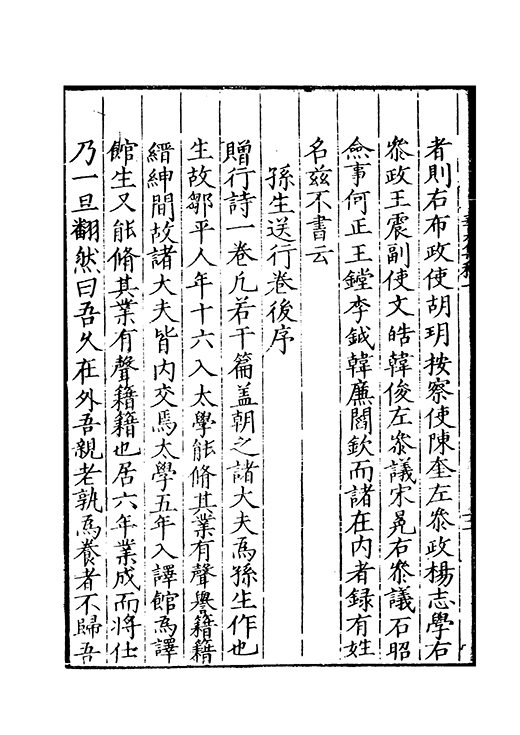 者則右布政使胡玥按察使陳奎左叅政楊志學右
叅政王震副使文皓韓俊左叅議宋冕右叅議石昭
僉事何正王鏜李鉞韓廉閻欽而諸在内者録有姓
名兹不書云
孫生送行卷後序
贈行詩一卷凢若干篇盖朝之諸大夫爲孫生作也
生故鄒平人年十六入太學能脩其業有聲譽籍籍
縉紳間故諸大夫皆内交焉太學五年入譯館爲譯
館生又能脩其業有聲籍籍也居六年業成而將仕
乃一旦翻然曰吾久在外吾親老孰爲養者不歸吾